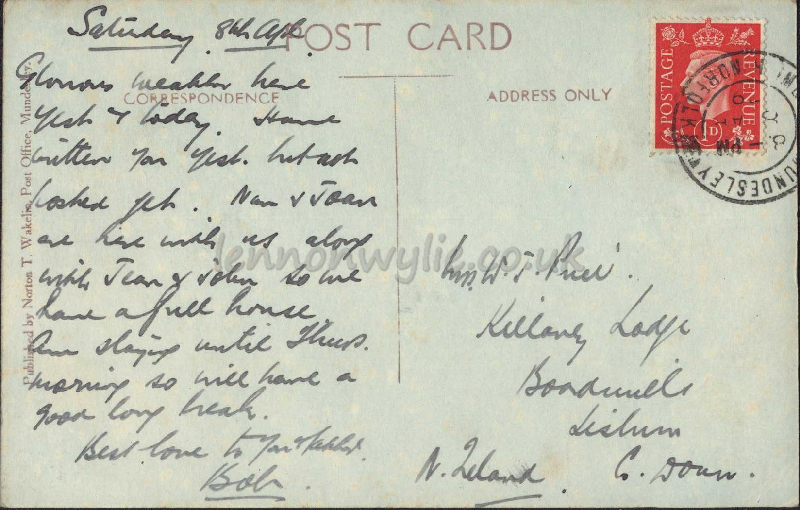 Saturday 8th Apl.
POST CARD
CORRESPONDENCE
ADDRESS ONLY
Glorious weather here
yest & today. Have
written you yest. but not
posted yet. Nan & Joan
are here with us along
with Jean & John so we
have a full house
Am staying until Thurs.
morning so will have a
good long break.
Best love to you &
Bob
Mrs. W. J.
Killaney Lodge
Boardmills
Lisburn
N. Ireland. C. Down.
Published by Norton T. Wakelin, Post Office, Mundesley.
POSTAGE REVENUE
1D
MUNDESLEY
NORFOLK
PM
lennonwylie.co.uk